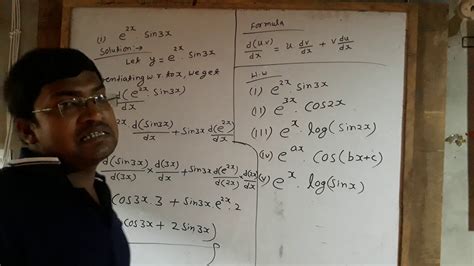 (i) e^2x Sin3x
Solution:→
Let y = e^2x . Sin3x
entiating w.r.to x, we get
d(e^2x Sin3x)
dx
d(Sin3x)/dx + Sin3x d(e^2x)/dx
d(Sin3x)/d(3x) × d(3x)/dx + Sin3x d(e^2x)/d(2x) × d(2x)/dx
cos3x . 3 + Sin3x . e^2x . 2
cos3x + 2 Sin3x)
Formula
d(uv)/dx = u dv/dx + v du/dx
H.W
(i) e^2x . Sin3x
(ii) e^3x . cos2x
(iii) e^x . log(Sin2x)
(iv) e^ax . cos(bx+c)
(v) e^x . log(Sinx)